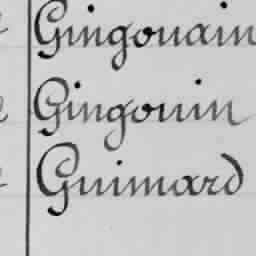 Gingouain
Gingouin
Guimard